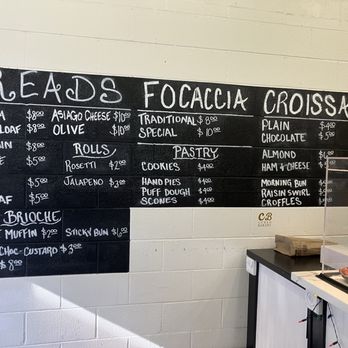 READS
$8.00
LOAF $8.00
$8.00
$5.00
$5.00
$5.00
ASIAGO CHEESE $10.00
OLIVE $10.00
ROLLS
ROSETTI $2.00
JALAPENO $2.00
BRIOCHE
MUFFIN $2.00 STICKY BUN
CHOC-CUSTARD $3.00
$8.00
FOCACCIA
TRADITIONAL $8.00
SPECIAL $10.00
PASTRY
COOKIES $4.00
HAND PIES $4.00
PUFF DOUGH $4.00
SCONES $4.00
CROISSA
PLAIN $4.00
CHOCOLATE $5.00
ALMOND
HAM & CHEESE
MORNING BUN
RAISIN SWIRL
CROFFLES
CB